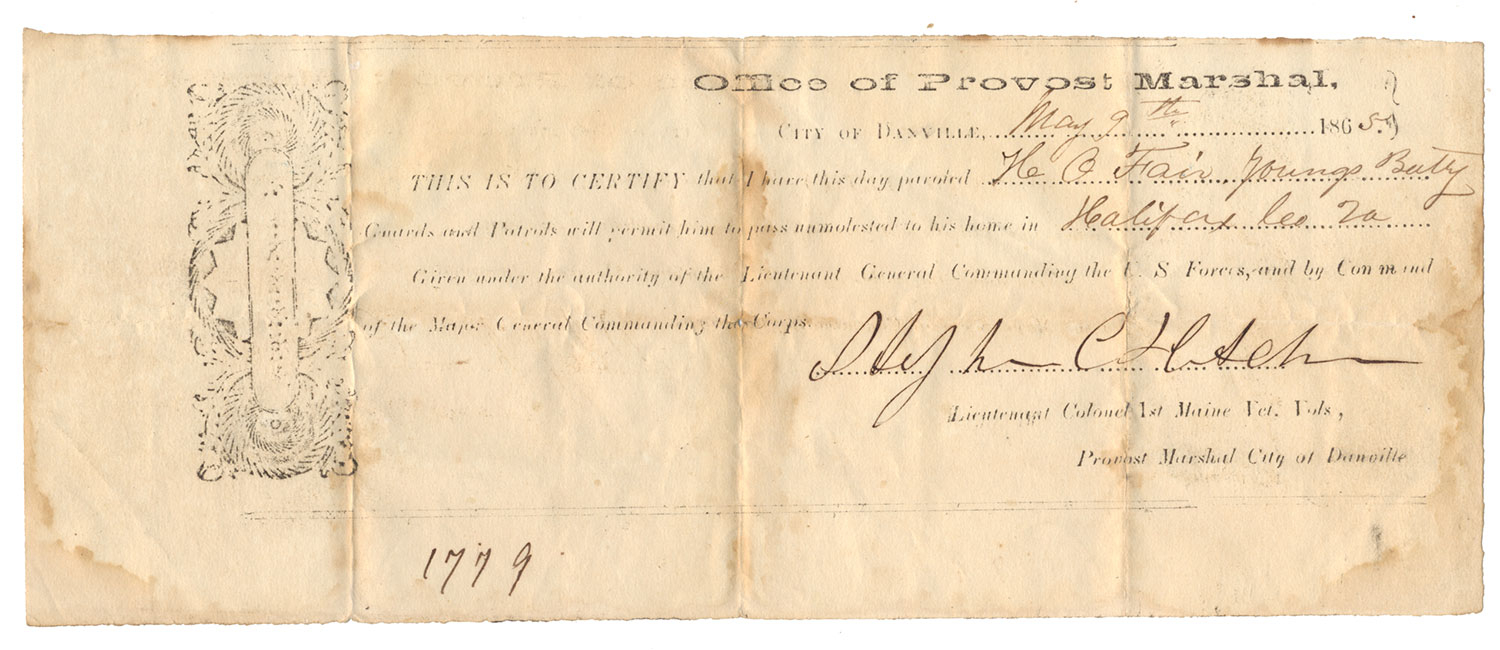 Office of Provost Marshal,
CITY OF DANVILLE, May 9th 1865.
THIS IS TO CERTIFY that I have this day paroled H C Fair Youngs Batty
Guards and Patrols will permit him to pass unmolested to his home in Halifax Co. Va
Given under the authority of the Lieutenant General Commanding the U. S Forces, and by Command
of the Major General Commanding the Corps.
Lieutenant Colonel 1st Maine Vet. Vols,
Provost Marshal City of Danville
1779